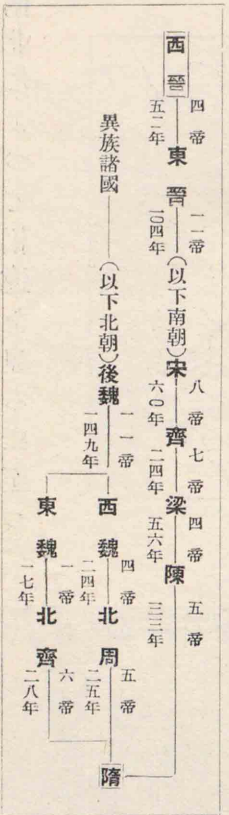 西晉
四帝
五二年
東晉
一一帝
一〇四年
(以下南朝)
宋
八帝
六〇年
齊
七帝
二四年
梁
四帝
五六年
陳
五帝
三三年
異族諸國
(以下北朝)
後魏
一一帝
一四九年
西魏
四帝
二四年
北周
五帝
二五年
東魏
一帝
一七年
北齊
六帝
二八年
隋